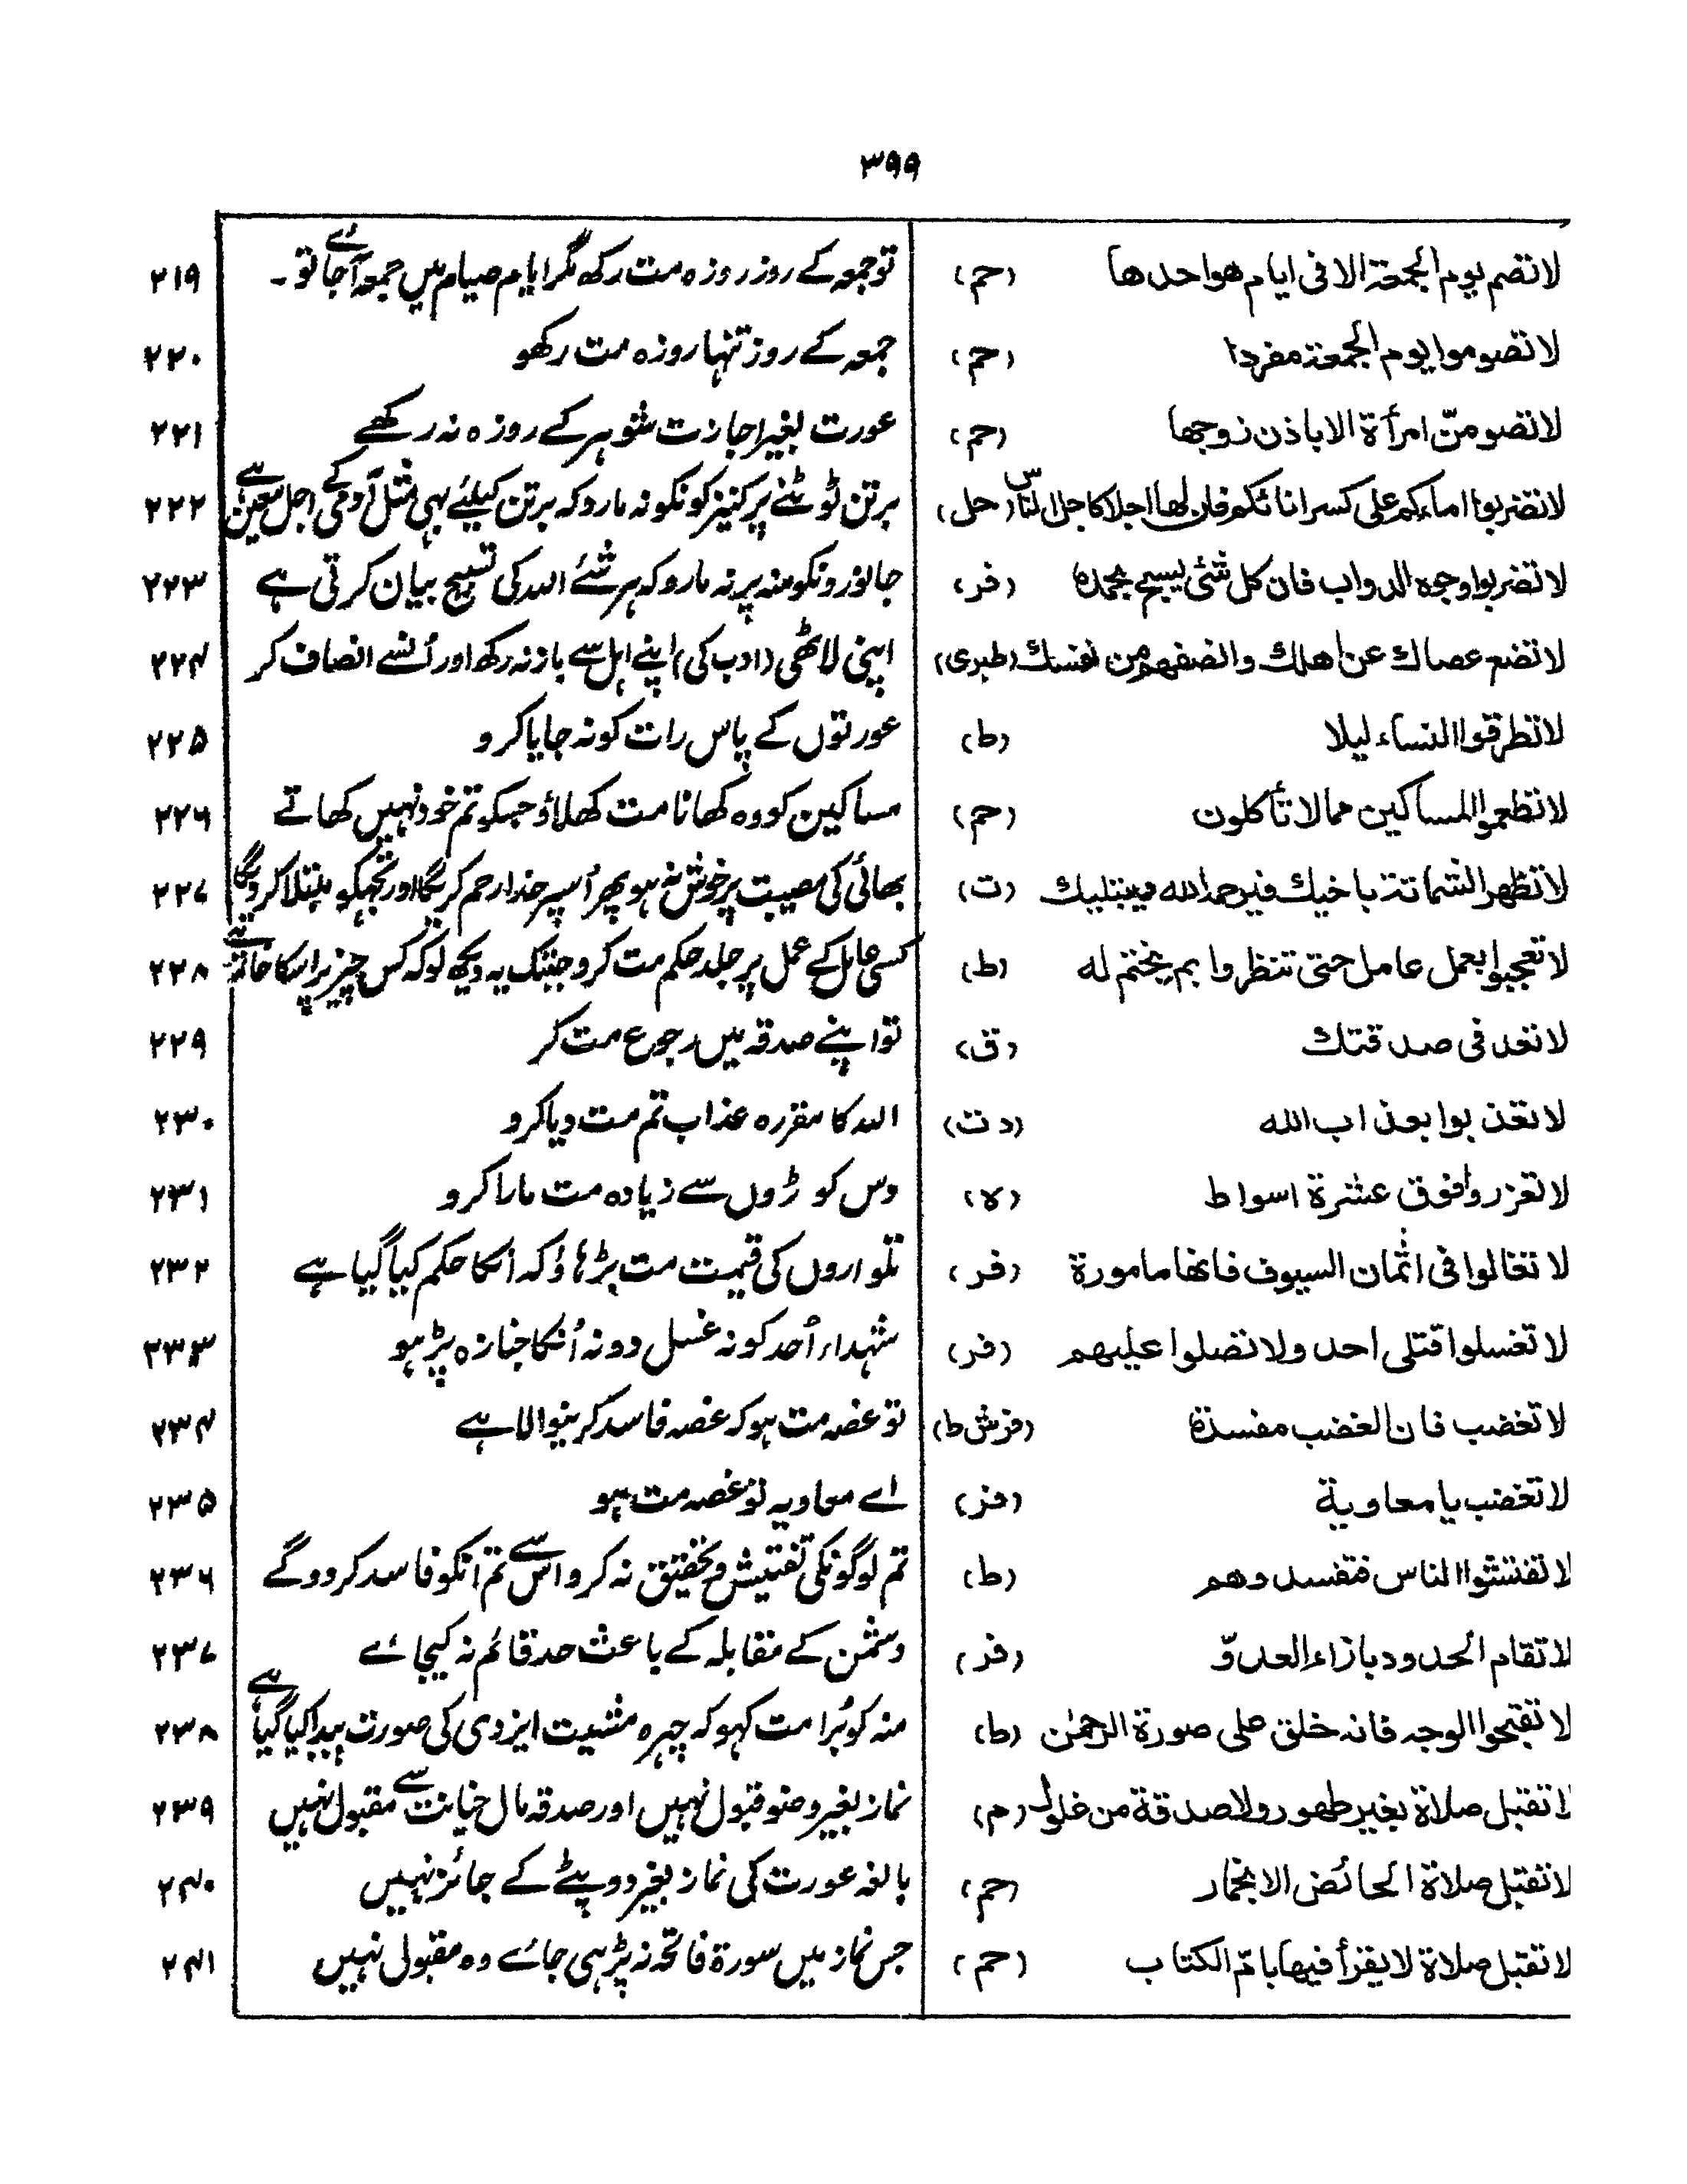 ۳۹۹
لا تصم يوم الجمعة الا فى ايام هو احدها (حم) تو جمعہ کے روز روزہ مت رکھ مگر ایام صیام میں جمعہ آجائے تو ۔ ۲۱۹
لا تصوموا يوم الجمعة مفردا (حم) جمعہ کے روز تنہا روزہ مت رکھو ۲۲۰
لا تصومنّ امرأة الا باذن زوجها (حم) عورت بغیر اجازت شوہر کے روزہ نہ رکھے ۲۲۱
لا تضربوا اماءكم على كسر انائكم فان لها اجلا كاجال الناس (حل) برتن ٹوٹنے پر کنیز کو نکو نہ مارو کہ برتن کیلئے بھی مثل آدمی کے اجل معین ہے ۲۲۲
لا تضربوا وجوه الدواب فان كل شئى يسبح بحمده (فر) جانورونکو منہ پر نہ مارو کہ ہر شئے اللہ کی تسبیح بیان کرتی ہے ۲۲۳
لا تضع عصاك عن اهلك وانصفهم من نفسك (طبرى) اپنی لاٹھی (ادب کی) اپنے اہل سے باز نہ رکھ اور اُنسے انصاف کر ۲۲۴
لا تطرقوا النساء ليلا (ط) عورتوں کے پاس رات کو نہ جایا کرو ۲۲۵
لا تطعموا المساكين مما لا تأكلون (حم) مساکین کو وہ کھانا مت کھلاؤ جسکو تم خود نہیں کھاتے ۲۲۶
لا تظهر الشماتة باخيك فيرحمه الله ويبتليك (ت) بھائی کی مصیبت پر خوش نہ ہو پھر اُسپر خدا رحم کریگا اور تجھکو مبتلا کر دیگا ۲۲۷
لا تعجبوا بعمل عامل حتى تنظروا بم يختم له (ط) کسی عامل کے عمل پر جلد حکم مت کرو جبتک یہ دیکھ لو کہ کس چیز پر اسکا خاتمہ ۲۲۸
لا تعد فى صدقتك (ق) تو اپنے صدقہ میں رجوع مت کر ۲۲۹
لا تعذبوا بعذاب الله (د ت) اللہ کا مقررہ عذاب تم مت دیا کرو ۲۳۰
لا تعزروا فوق عشرة اسواط (ه) دس کوڑوں سے زیادہ مت مارا کرو ۲۳۱
لا تغالوا فى اثمان السيوف فانها مامورة (فر) تلواروں کی قیمت مت بڑہاؤ کہ اسکا حکم کیا گیا ہے ۲۳۲
لا تغسلوا قتلى احد ولا تصلوا عليهم (فر) شہداء اُحد کو نہ غسل دو نہ اُنکا جنازہ پڑہو ۲۳۳
لا تغضب فان الغضب مفسدة (فرش ط) تو غصہ مت ہو کہ غصہ فاسد کرنیوالا ہے ۲۳۴
لا تغضب يا معاوية (فر) اے معاویہ تو غصہ مت ہو ۲۳۵
لا تفتشوا الناس فتفسدوهم (ط) تم لوگونکی تفتیش و تحقیق نہ کرو اس سے تم انکو فاسد کردو گے ۲۳۶
لا تقام الحدود بازاء العدوّ (فر) دشمن کے مقابلہ کے باعث حد قائم نہ کیجائے ۲۳۷
لا تقبحوا الوجه فانه خلق على صورة الرحمٰن (ط) منہ کو بُرا مت کہو کہ چہرہ مشیت ایزدی کی صورت پیدا کیا گیا ہے ۲۳۸
لا تقبل صلاة بغير طهور ولا صدقة من غلول (م) نماز بغیر وضو قبول نہیں اور صدقہ مال خیانت سے مقبول نہیں ۲۳۹
لا تقبل صلاة الحائض الا بخمار (حم) بالغہ عورت کی نماز بغیر دوپٹے کے جائز نہیں ۲۴۰
لا تقبل صلاة لا يقرأ فيها بامّ الكتاب (حم) جس نماز میں سورۃ فاتحہ نہ پڑہی جائے وہ مقبول نہیں ۲۴۱